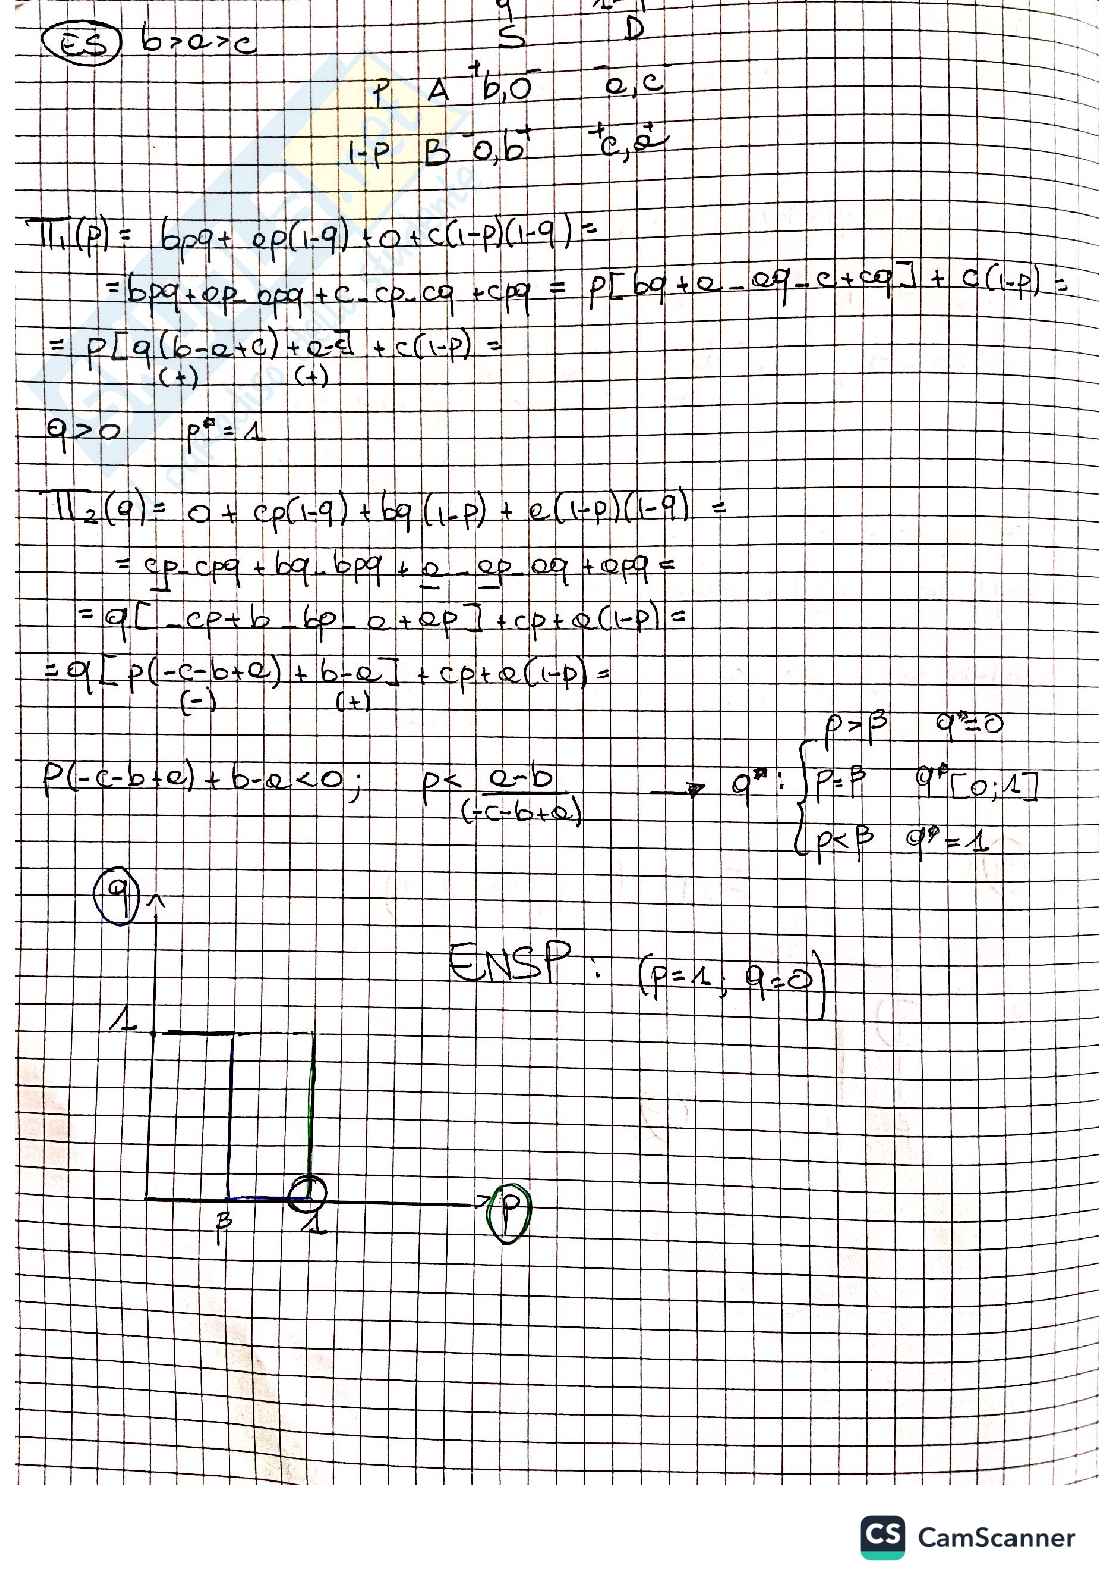 q 1-q
ES b>a>c S D
P A +b,0- -a,c-
1-P B -0,b+ +c,a+
Π₁(p) = bpq + ap(1-q) + 0 + c(1-p)(1-q) =
= bpq + ap - apq + c - cp - cq + cpq = p[bq + a - aq - c + cq] + c(1-p) =
= p[q(b-a+c) + a-c] + c(1-p) =
(+) (+)
q>0 p* = 1
Π₂(q) = 0 + cp(1-q) + bq(1-p) + a(1-p)(1-q) =
= cp - cpq + bq - bpq + a - ap - aq + apq =
= q[-cp + b - bp - a + ap] + cp + a(1-p) =
= q[p(-c-b+a) + b-a] + cp + a(1-p) =
(-) (+)
p>β q*=0
P(-c-b+a) + b-a < 0; p< a-b/(-c-b+a) → q*: p=β q*[0;1]
p<β q*=1
q
ENSP: (p=1; q=0)
1
β 1 p
CS CamScanner